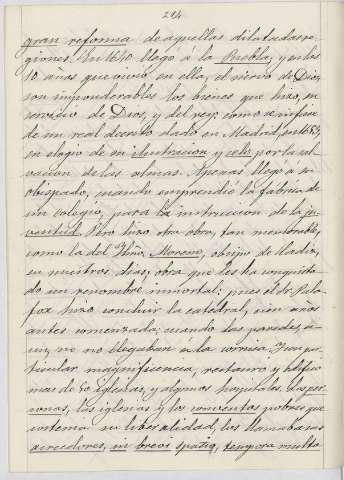 214
gran reforma de aquellas dilatadas re-
giones. En 1640 llegó á la Puebla, y en los
10 años que vivió en ella, el siervo de Dios,
son imponderables los bienes que hizo, en
servicio de Dios, y del rey; como se infiere
de un real decreto dado en Madrid, en
en elogio de su ilustracion y celo por la sal-
vacion de las almas. Apenas llegó á su
obispado, cuando emprendió la fábrica de
un colegio, para la instruccion de la ju-
ventud. Pero hizo otra obra, tan memorable,
como la del Yllmo. Moreno, obispo de Cadiz,
en nuestros dias; obra que les ha conquista-
do un renombre inmortal; pues el Sr. Pala-
fox hizo concluir la catedral, cien años
antes comenzada; cuando las paredes, a-
un, no llegaban á la cornisa. Con par-
ticular magnificencia, restauró y edificó
mas de 50 iglesias, y algunos hospitales. Las per-
sonas, las iglesias y los conventos pobres que
sostenia su liberalidad, los llamaba sus
acreedores, in brevi spatio, tempora multa